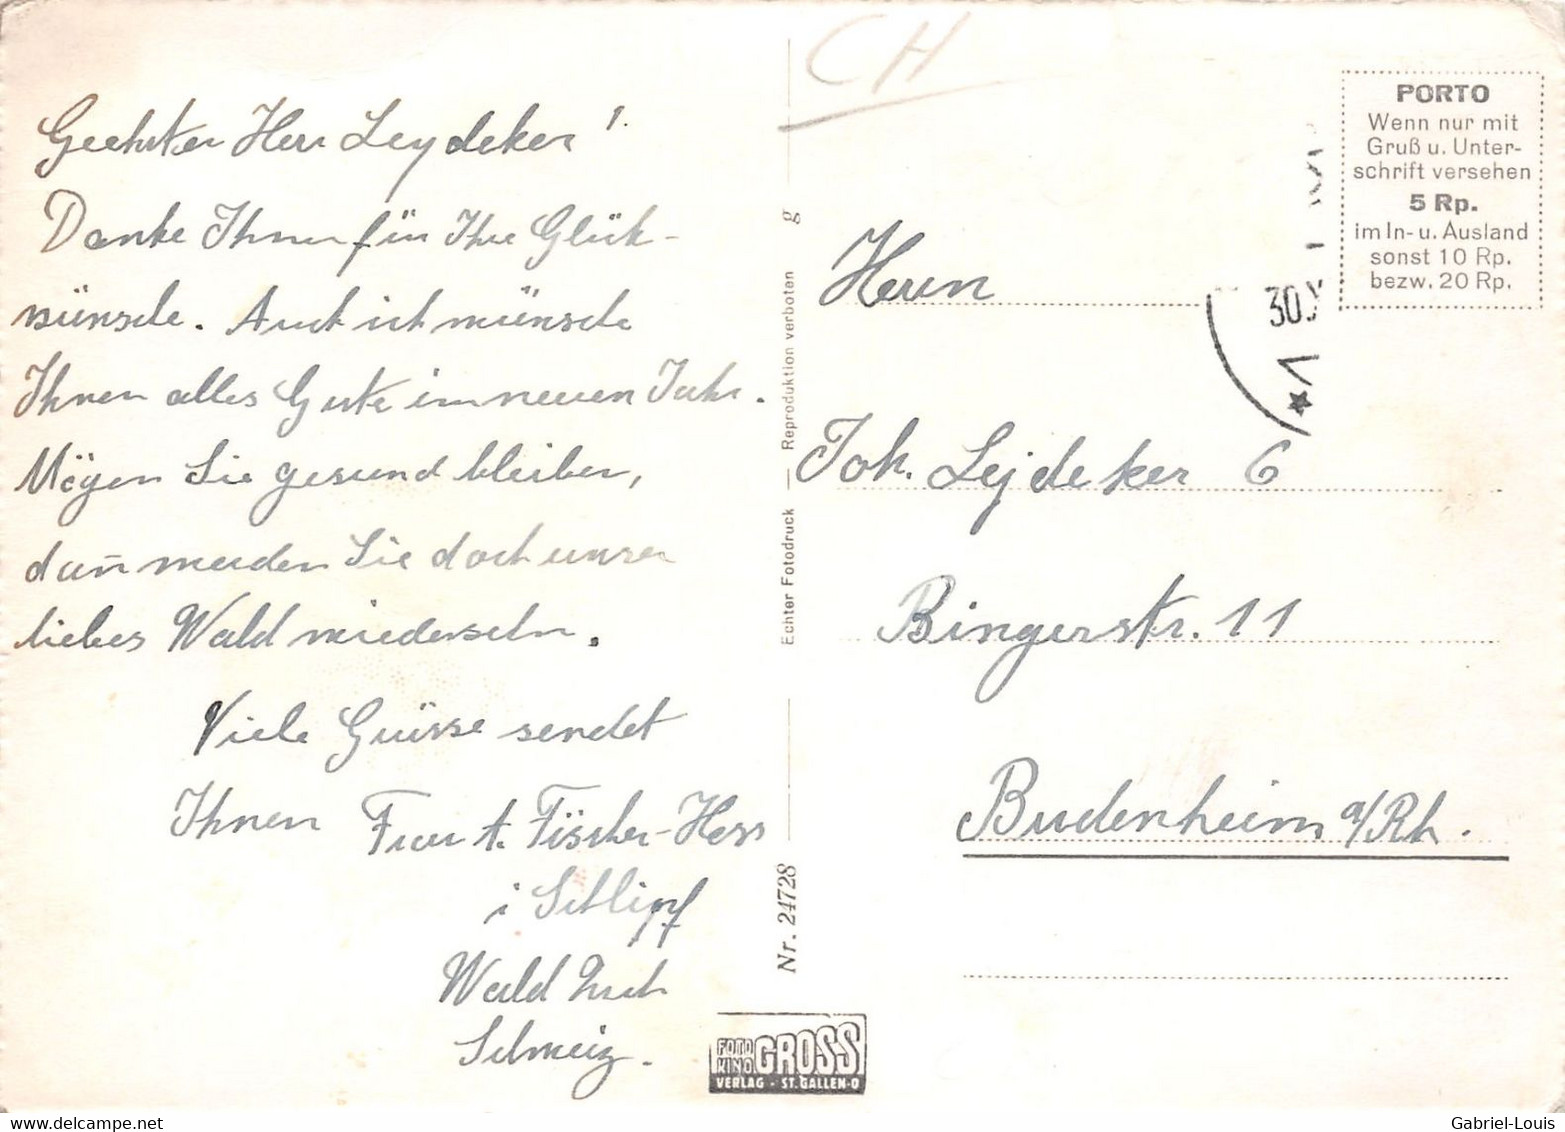 CH
Geehrter Herr Leydeker!
Danke Ihnen für Ihre Glück-
wünsche. Auch ich wünsche
Ihnen alles Gute im neuen Jahr.
Mögen Sie gesund bleiben,
dann werden Sie doch unser
liebes Wald wiedersehn.
Viele Grüsse sendet
Ihnen Frau A. Fischer-Hess
i Schlipf
Wald Zrch
Schweiz.
Echter Fotodruck — Reproduktion verboten g
Nr. 24728
FOTO
KINO GROSS
VERLAG - ST. GALLEN-O
PORTO
Wenn nur mit
Gruß u. Unter-
schrift versehen
5 Rp.
im In- u. Ausland
sonst 10 Rp.
bezw. 20 Rp.
30.X
Herrn
Joh. Lejdeker 6
Bingerstr. 11
Budenheim a/Rh.
Gabriel-Louis